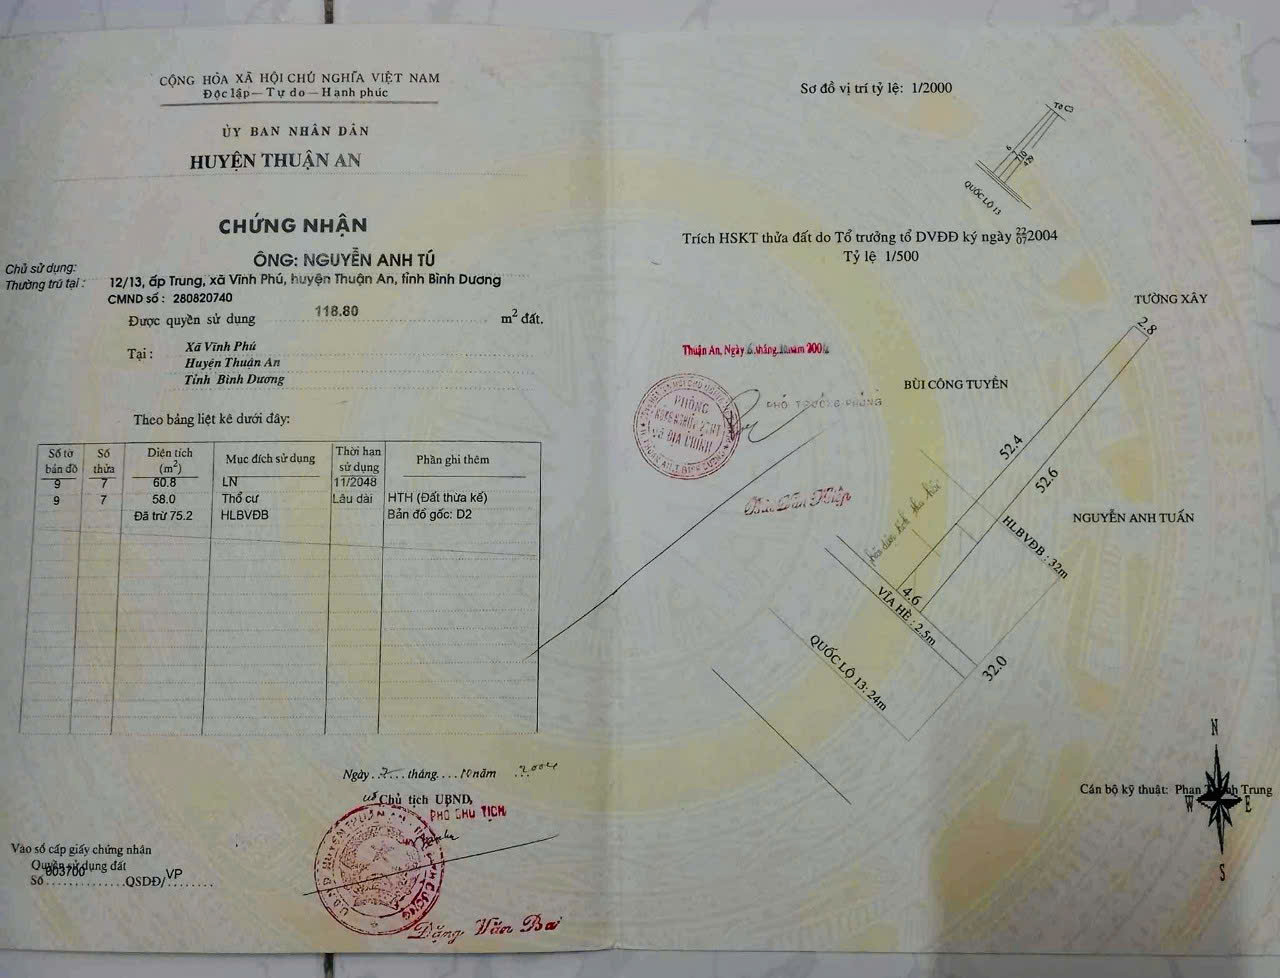 CỘNG HÒA XÃ HỘI CHỦ NGHĨA VIỆT NAM
Độc lập – Tự do – Hạnh phúc
ỦY BAN NHÂN DÂN
HUYỆN THUẬN AN
CHỨNG NHẬN
Chủ sử dụng: ÔNG: NGUYỄN ANH TÚ
Thường trú tại : 12/13, ấp Trung, xã Vĩnh Phú, huyện Thuận An, tỉnh Bình Dương
CMND số : 280820740
Được quyền sử dụng 118.80 m² đất.
Tại : Xã Vĩnh Phú
Huyện Thuận An
Tỉnh Bình Dương
Theo bảng liệt kê dưới đây:
Số tờ bản đồ Số thửa Diện tích (m²) Mục đích sử dụng Thời hạn sử dụng Phần ghi thêm
9 7 60.8 LN 11/2048
9 7 58.0 Thổ cư Lâu dài HTH (Đất thừa kế)
Đã trừ 75.2 HLBVĐB Bản đồ gốc: D2
Ngày tháng 10 năm 2004
Chủ tịch UBND,
PHÓ CHỦ TỊCH
Đặng Văn Ba
Vào sổ cấp giấy chứng nhận
Quyền sử dụng đất
Số 003700 QSDĐ/ VP
Sơ đồ vị trí tỷ lệ: 1/2000
QUỐC LỘ 13
Trích HSKT thửa đất do Tổ trưởng tổ DVĐĐ ký ngày 22/07 2004
Tỷ lệ 1/500
TƯỜNG XÂY
2.8
Thuận An, Ngày 6 tháng 10 năm 2004
PHÓ TRƯỞNG PHÒNG
BÙI CÔNG TUYỀN
52.4
52.6
NGUYỄN ANH TUẤN
HLBVĐB : 32m
4.6
VỈA HÈ : 2.5m
32.0
QUỐC LỘ 13: 24m
N
W E
S
Cán bộ kỹ thuật: Phan Trung